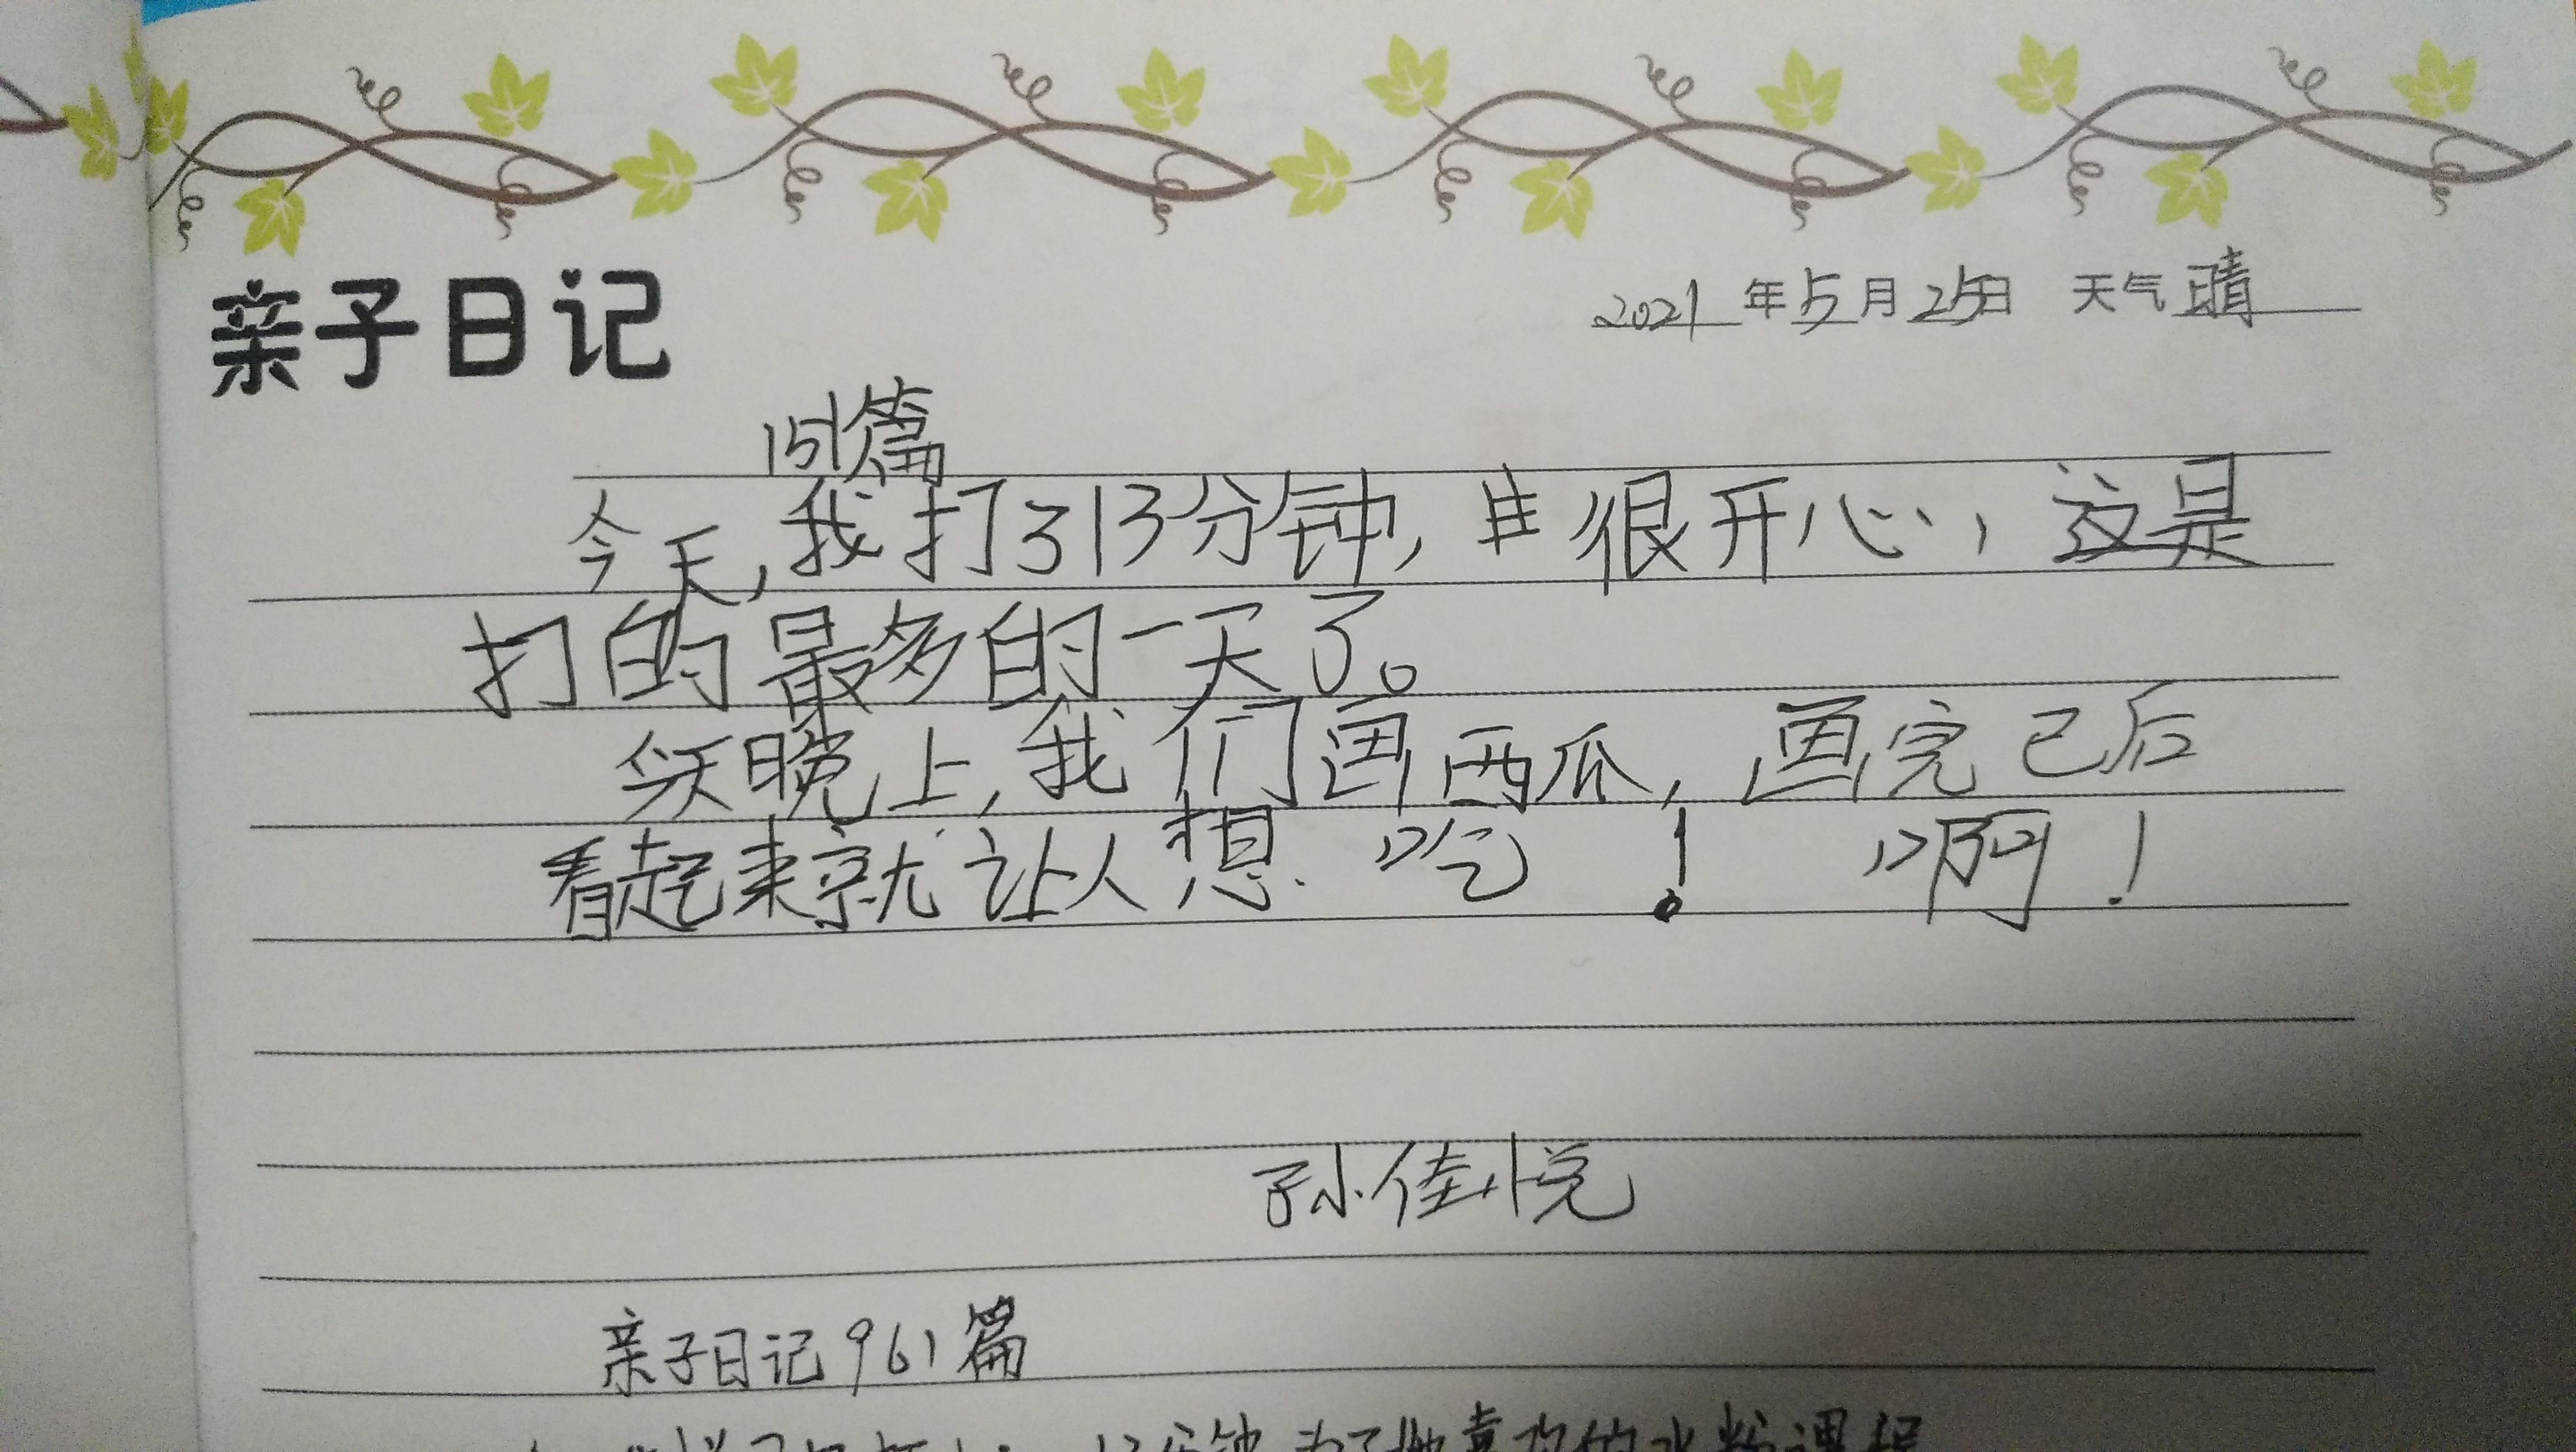 亲子日记
2021年5月25日 天气 晴
151篇
今天,我打了13分钟,且很开心,这是
打的最多的一天了。
今天晚上,我们画西瓜,画完已后
看起来就让人想吃!啊!
孙佳悦
亲子日记961篇